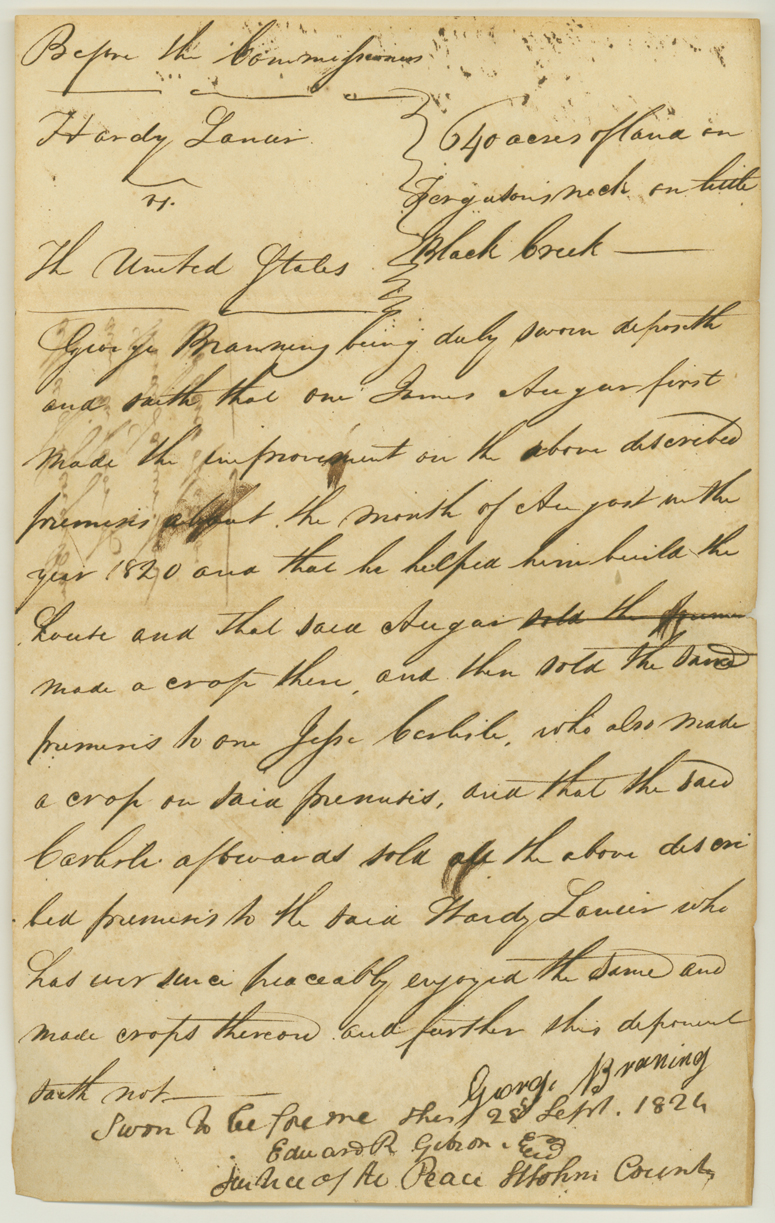 Before the Commissioners
Hardy Lanier
640 acres of land on
vs.
Fergusons neck on little
The United States
Black Creek
George Branning being duly sworn deposeth
and saith that one James Augar first
made the improvement on the above described
premises about the month of August in the
year 1820 and that he helped him build the
house and that said Augar sold the premi
made a crop there, and then sold the said
premises to one Jesse Carlisle, who also made
a crop on said premises, and that the said
Carlisle afterwards sold all the above descri
bed premises to the said Hardy Lanier who
has ever since peaceably enjoyed the same and
made crops thereon and further this deponent
saith not
George Braning
Sworn to before me this 28 Sept. 1824
Edward R Gibson
Justice of the Peace St Johns County